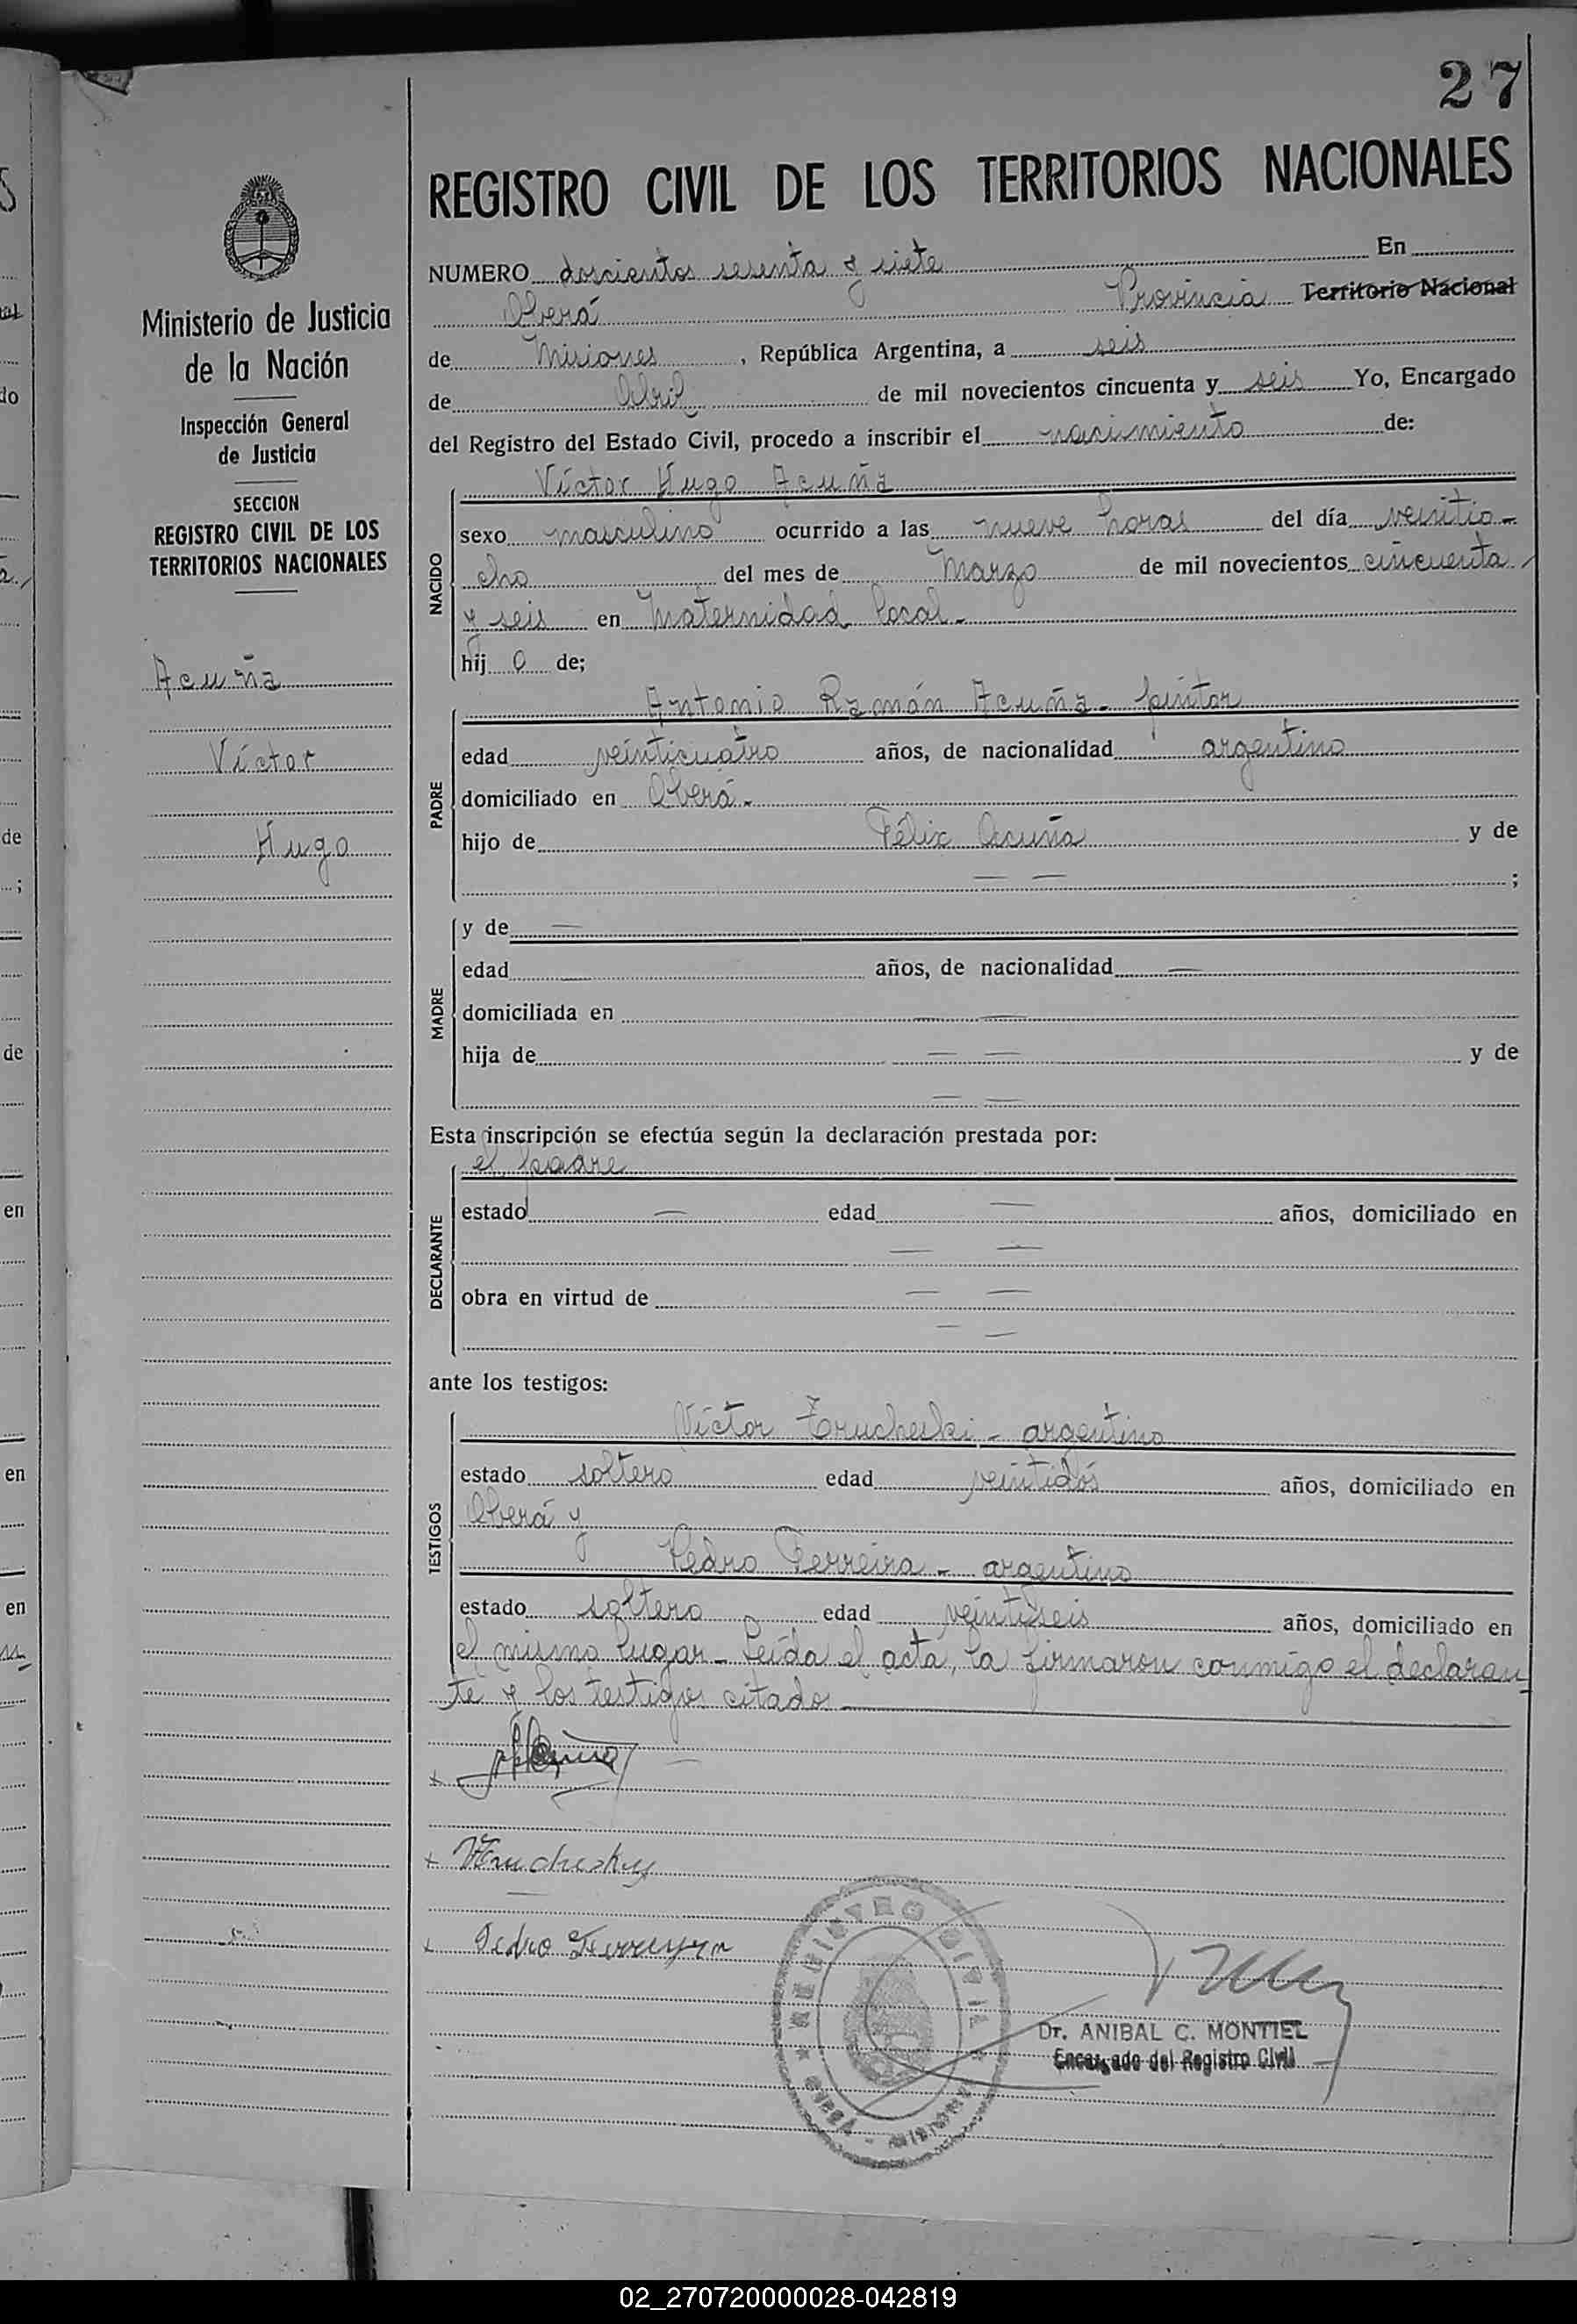 27
REGISTRO CIVIL DE LOS TERRITORIOS NACIONALES
Ministerio de Justicia
de la Nación
Inspección General
de Justicia
SECCION
REGISTRO CIVIL DE LOS
TERRITORIOS NACIONALES
Acuña
Víctor
Hugo
NUMERO doscientos sesenta y siete En
Oberá Provincia Territorio Nacional
de Misiones, República Argentina, a seis
de Abril de mil novecientos cincuenta y seis Yo, Encargado
del Registro del Estado Civil, procedo a inscribir el nacimiento de:
NACIDO
Víctor Hugo Acuña
sexo masculino ocurrido a las nueve horas del día veintio-
cho del mes de Marzo de mil novecientos cincuenta
y seis en Maternidad local.-
hij o de;
PADRE
Antonio Ramón Acuña - pintor
edad veinticuatro años, de nacionalidad argentino
domiciliado en Oberá.-
hijo de Félix Acuña y de
— — ;
MADRE
y de —
edad — años, de nacionalidad —
domiciliada en — —
hija de — — y de
— —
Esta inscripción se efectúa según la declaración prestada por:
DECLARANTE
el padre
estado — edad — años, domiciliado en
— —
obra en virtud de — —
— —
ante los testigos:
TESTIGOS
Víctor - argentino
estado soltero edad veintidós años, domiciliado en
Oberá y
Pedro Ferreira - argentino
estado soltero edad veintiseis años, domiciliado en
el mismo lugar - Leída el acta, la firmaron conmigo el declaran
te y los testigos citados
Pedro Ferreyra
REGISTRO CIVIL
OBERA - MISIONES
Dr. ANIBAL C. MONTIEL
Encargado del Registro Civil
02_270720000028-042819